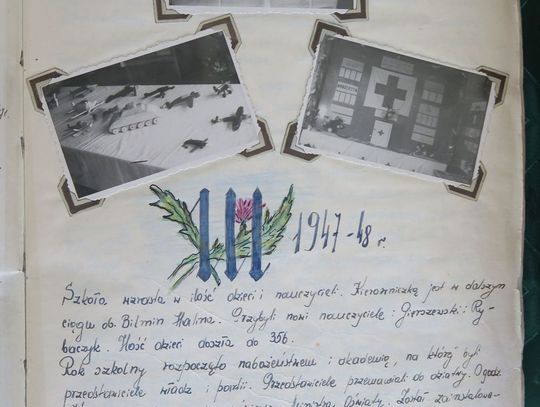 III 1947-48 r.
Szkoła wzrasta w ilość dzieci i nauczycieli. Kierowniczką jest w dalszym
ciągu ob. Bilmin Halina. Przybyli nowi nauczyciele: Gierszewski i Ry-
baczyk. Ilość dzieci doszła do 356.
Rok szkolny rozpoczęto nabożeństwem i akademią, na której byli
przedstawiciele władz i partii. Przedstawiciele przemawiali do dziatwy. O godz.
Ministra Oświaty. Został zainstalowa-